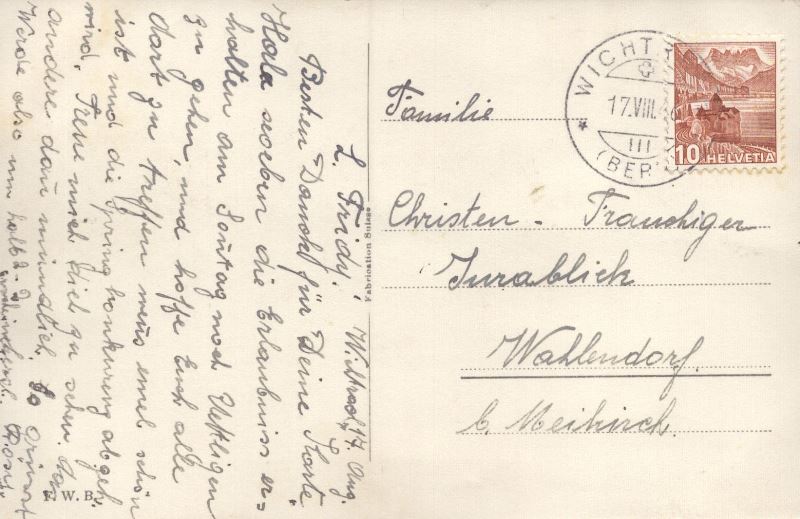 Wichtrach, 17. Aug.
L. Fridy!
Besten Dank für Deine Karte
Habe soeben die Erlaubniss er-
halten am Sontag nach Uettligen
zu gehen, und hoffe Euch alle
dort zu treffen wens emel schön
ist und die Springkonkurenz abgeh.
wird. Freue mich Dich zu sehen
andere dan mündlich.
Werde also um halb 2
Rosa.
Fabrication Suisse
F. W. B.
WICHTRACH
17.VIII.
III
(BERN)
10 HELVETIA
Familie
Christen - Trauchiger
Jurablick
Wahlendorf.
b. Meikirch.